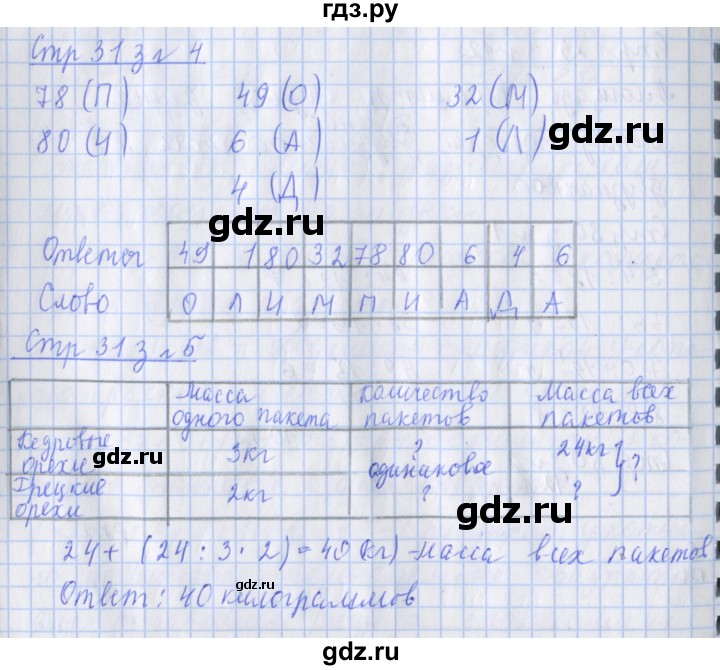 гдз.ру
Стр 31 з г 4
78 (П) 49 (О) 32 (М)
gdz.ru
80 (И) 6 (А) 1 (Л)
4 (Д)
gdz.ru
Ответы 49 1 80 32 78 80 6 4 6
Слово О Л И М П И А Д А
Стр 31 з г 5
Масса одного пакета Количество пакетов Масса всех пакетов
Кедровые орехи 3кг ? 24кг ?
gdz.ru одинаковое gdz.ru
Грецкие орехи 2кг ? ?
24 + (24 : 3 · 2) = 40 (кг) - масса всех пакетов
gdz.ru
Ответ: 40 килограммов
gdz.ru
gdz.ru